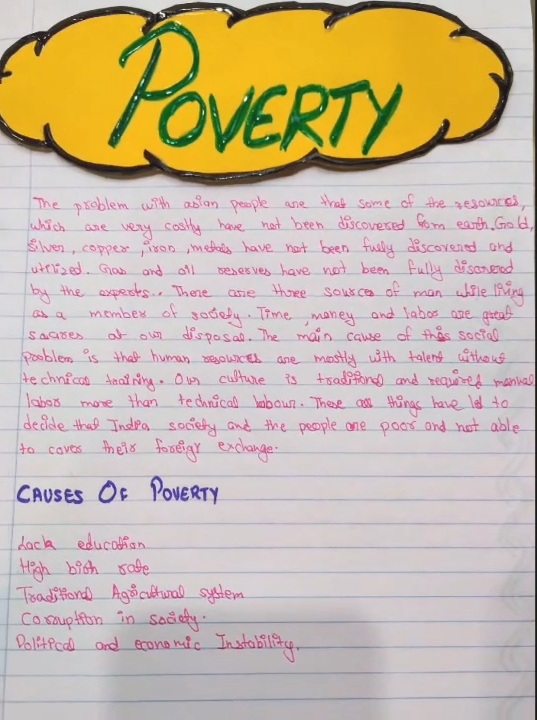 POVERTY
The problem with asian people are that some of the resources,
which are very costly have not been discovered from earth, Gold,
Silver, copper, iron, metals have not been fully discovered and
utilized. Gas and oil reserves have not been fully discovered
by the experts.. There are three sources of man while living
as a member of society. Time, money and labor are great
sources at our disposal. The main cause of this social
problem is that human resources are mostly with talent without
technical training. Our culture is traditional and required manual
labor more than technical labour. These all things have led to
decide that India society and the people are poor and not able
to cover their foreign exchange.
CAUSES OF POVERTY
Lack education
High birth rate
Traditional Agricultural system
Corruption in society.
Political and economic Instability.